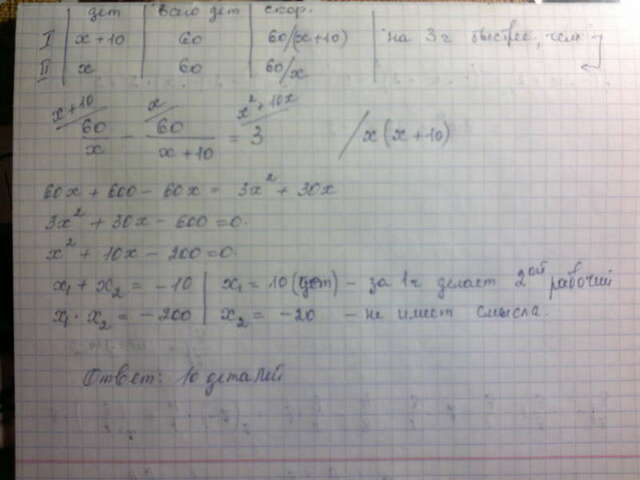 дет | всего дет | скор.
I | x+10 | 60 | 60/(x+10) | на 3 ч быстрее, чем
II | x | 60 | 60/x
x+10 x x²+10x
60/x − 60/(x+10) = 3 /x(x+10)
60x + 600 − 60x = 3x² + 30x
3x² + 30x − 600 = 0.
x² + 10x − 200 = 0.
x₁ + x₂ = −10 | x₁ = 10 (дет) − за 1 ч делает 2ой рабочий
x₁ · x₂ = −200 | x₂ = −20 − не имеет смысла.
Ответ: 10 деталей